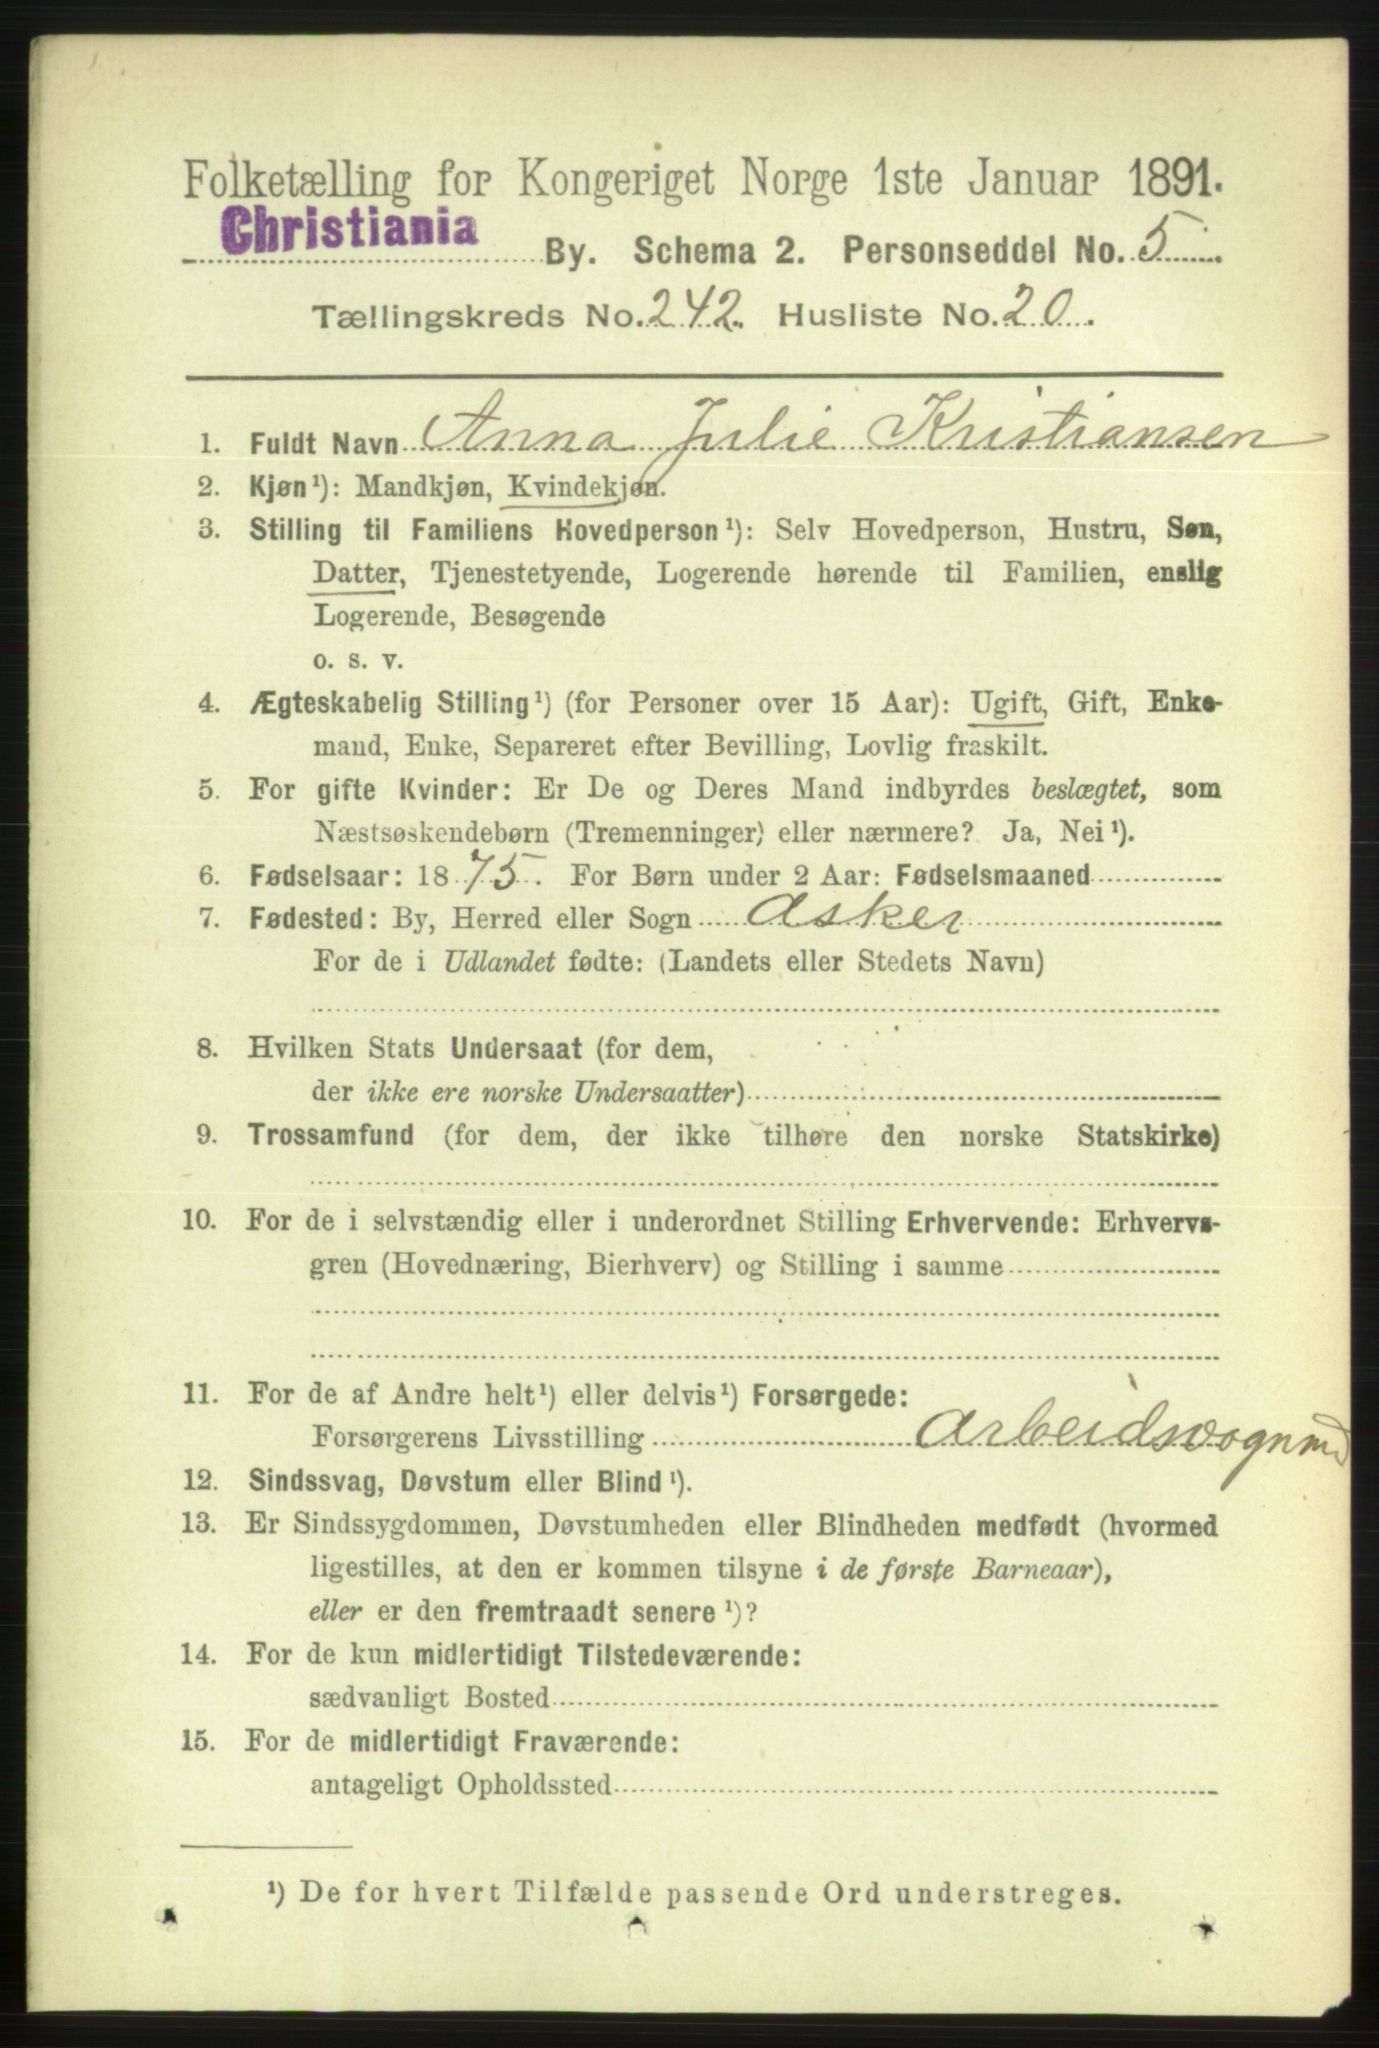 Folketælling for Kongeriget Norge 1ste Januar 1891.
Christiania By. Schema 2. Personseddel No. 5
Tællingskreds No. 242. Husliste No. 20.
1. Fuldt Navn Anna Julie Kristiansen
2. Kjøn¹): Mandkjøn, Kvindekjøn.
3. Stilling til Familiens Hovedperson¹): Selv Hovedperson, Hustru, Søn,
Datter, Tjenestetyende, Logerende hørende til Familien, enslig
Logerende, Besøgende
o. s. v.
4. Ægteskabelig Stilling¹) (for Personer over 15 Aar): Ugift, Gift, Enke-
mand, Enke, Separeret efter Bevilling, Lovlig fraskilt.
5. For gifte Kvinder: Er De og Deres Mand indbyrdes beslægtet, som
Næstsøskendebørn (Tremenninger) eller nærmere? Ja, Nei¹).
6. Fødselsaar: 1875. For Børn under 2 Aar: Fødselsmaaned
7. Fødested: By, Herred eller Sogn Asker
For de i Udlandet fødte: (Landets eller Stedets Navn)
8. Hvilken Stats Undersaat (for dem,
der ikke ere norske Undersaatter)
9. Trossamfund (for dem, der ikke tilhøre den norske Statskirke)
10. For de i selvstændig eller i underordnet Stilling Erhvervende: Erhvervs-
gren (Hovednæring, Bierhverv) og Stilling i samme
11. For de af Andre helt¹) eller delvis¹) Forsørgede:
Forsørgerens Livsstilling Arbeidsvognmd
12. Sindssvag, Døvstum eller Blind¹).
13. Er Sindssygdommen, Døvstumheden eller Blindheden medfødt (hvormed
ligestilles, at den er kommen tilsyne i de første Barneaar),
eller er den fremtraadt senere¹)?
14. For de kun midlertidigt Tilstedeværende:
sædvanligt Bosted
15. For de midlertidigt Fraværende:
antageligt Opholdssted
¹) De for hvert Tilfælde passende Ord understreges.